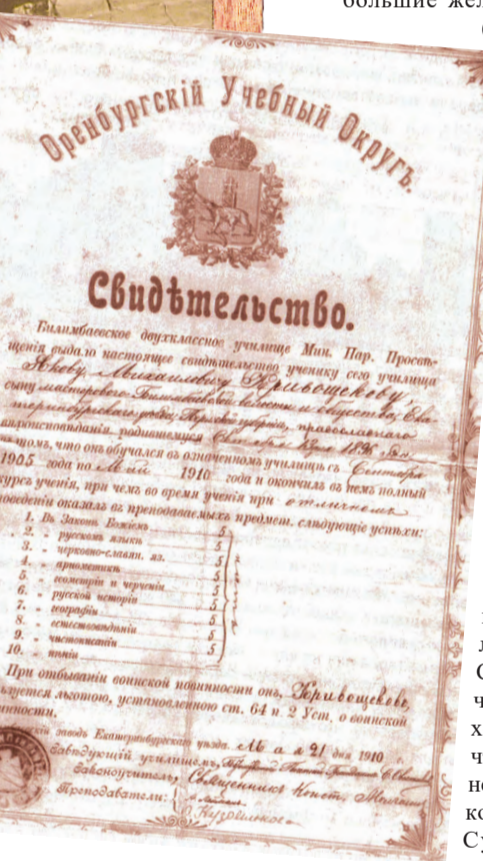 большие
Оренбургскій Учебный Округъ.
Свидѣтельство.
Билимбаевское двухклассное училище Мин. Нар. Просвѣ-
щенія выдало настоящее свидѣтельство ученику сего училища
Якову Михаиловичу Кривощекову,
сыну мастерового Билимбаевской волости и общества, Ека-
теринбургскаго уѣзда, Пермской губерніи, православнаго
вѣроисповѣданія, родившемуся 1896
томъ, что онъ обучался въ означенномъ училищѣ съ Сентября
1905 года по Май 1910 года и окончилъ въ немъ полный
курсъ ученія, при чемъ во время ученія при отличномъ
поведеніи оказалъ въ преподаваемыхъ предмет. слѣдующіе успѣхи:
1. Въ Законѣ Божіемъ 5
2. „ русскомъ языкѣ 5
3. „ церковно-славян. яз. 5
4. „ ариѳметикѣ 5
5. „ геометріи и черченіи 5
6. „ русской исторіи 5
7. „ географіи 5
8. „ естествовѣдѣніи 5
9. „ чистописаніи 5
10. „ пѣніи 5
При отбываніи воинской повинности онъ, Кривощековъ,
льзуется льготою, установленною ст. 64 п. 2 Уст. о воинской
инности.
заводъ Екатеринбургскаго уѣзда. Мая 21 дня 1910 г.
Завѣдующій училищемъ,
Законоучитель, Священникъ Конст.
Преподаватели: